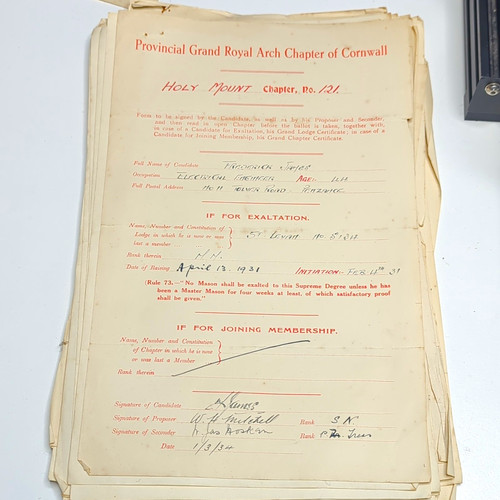 Provincial Grand Royal Arch Chapter of Cornwall
HOLY MOUNT Chapter, No. 121.
Form to be signed by the Candidate, as well as by his Proposer and Seconder,
and then read in open Chapter before the ballot is taken, together with,
in case of a Candidate for Exaltation, his Grand Lodge Certificate; in case of a
Candidate for Joining Membership, his Grand Chapter Certificate.
Full Name of Candidate FREDERICK
Occupation ELECTRICAL ENGINEER AGE
Full Postal Address ROAD PENZANCE
IF FOR EXALTATION.
Name, Number and Constitution of
Lodge in which he is now or was
last a member ST LEVAN No 5134
Rank therein M.M.
Date of Raising April 13. 1931 INITIATION FEB 4TH 31
(Rule 73.—"No Mason shall be exalted to this Supreme Degree unless he has
been a Master Mason for four weeks at least, of which satisfactory proof
shall be given."
IF FOR JOINING MEMBERSHIP.
Name, Number and Constitution
of Chapter in which he is now
or was last a Member
Rank therein
Signature of Candidate
Signature of Proposer W. H. Mitchell Rank S N
Signature of Seconder Jas Hosken Rank
Date 1/3/34